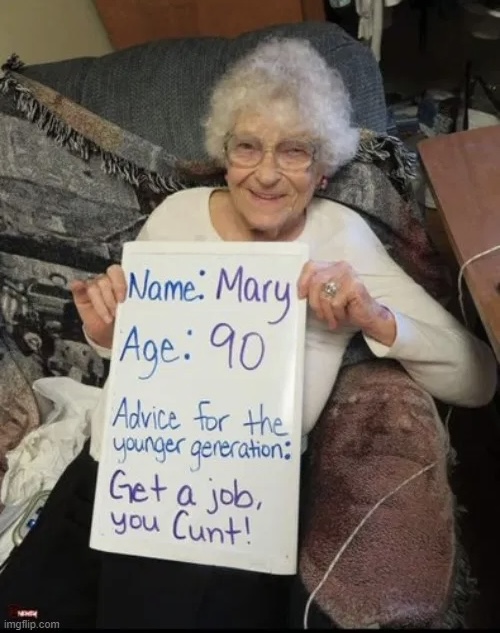 Name: Mary
Age: 90
Advice for the
younger generation:
Get a job,
you Cunt!
imgflip.com